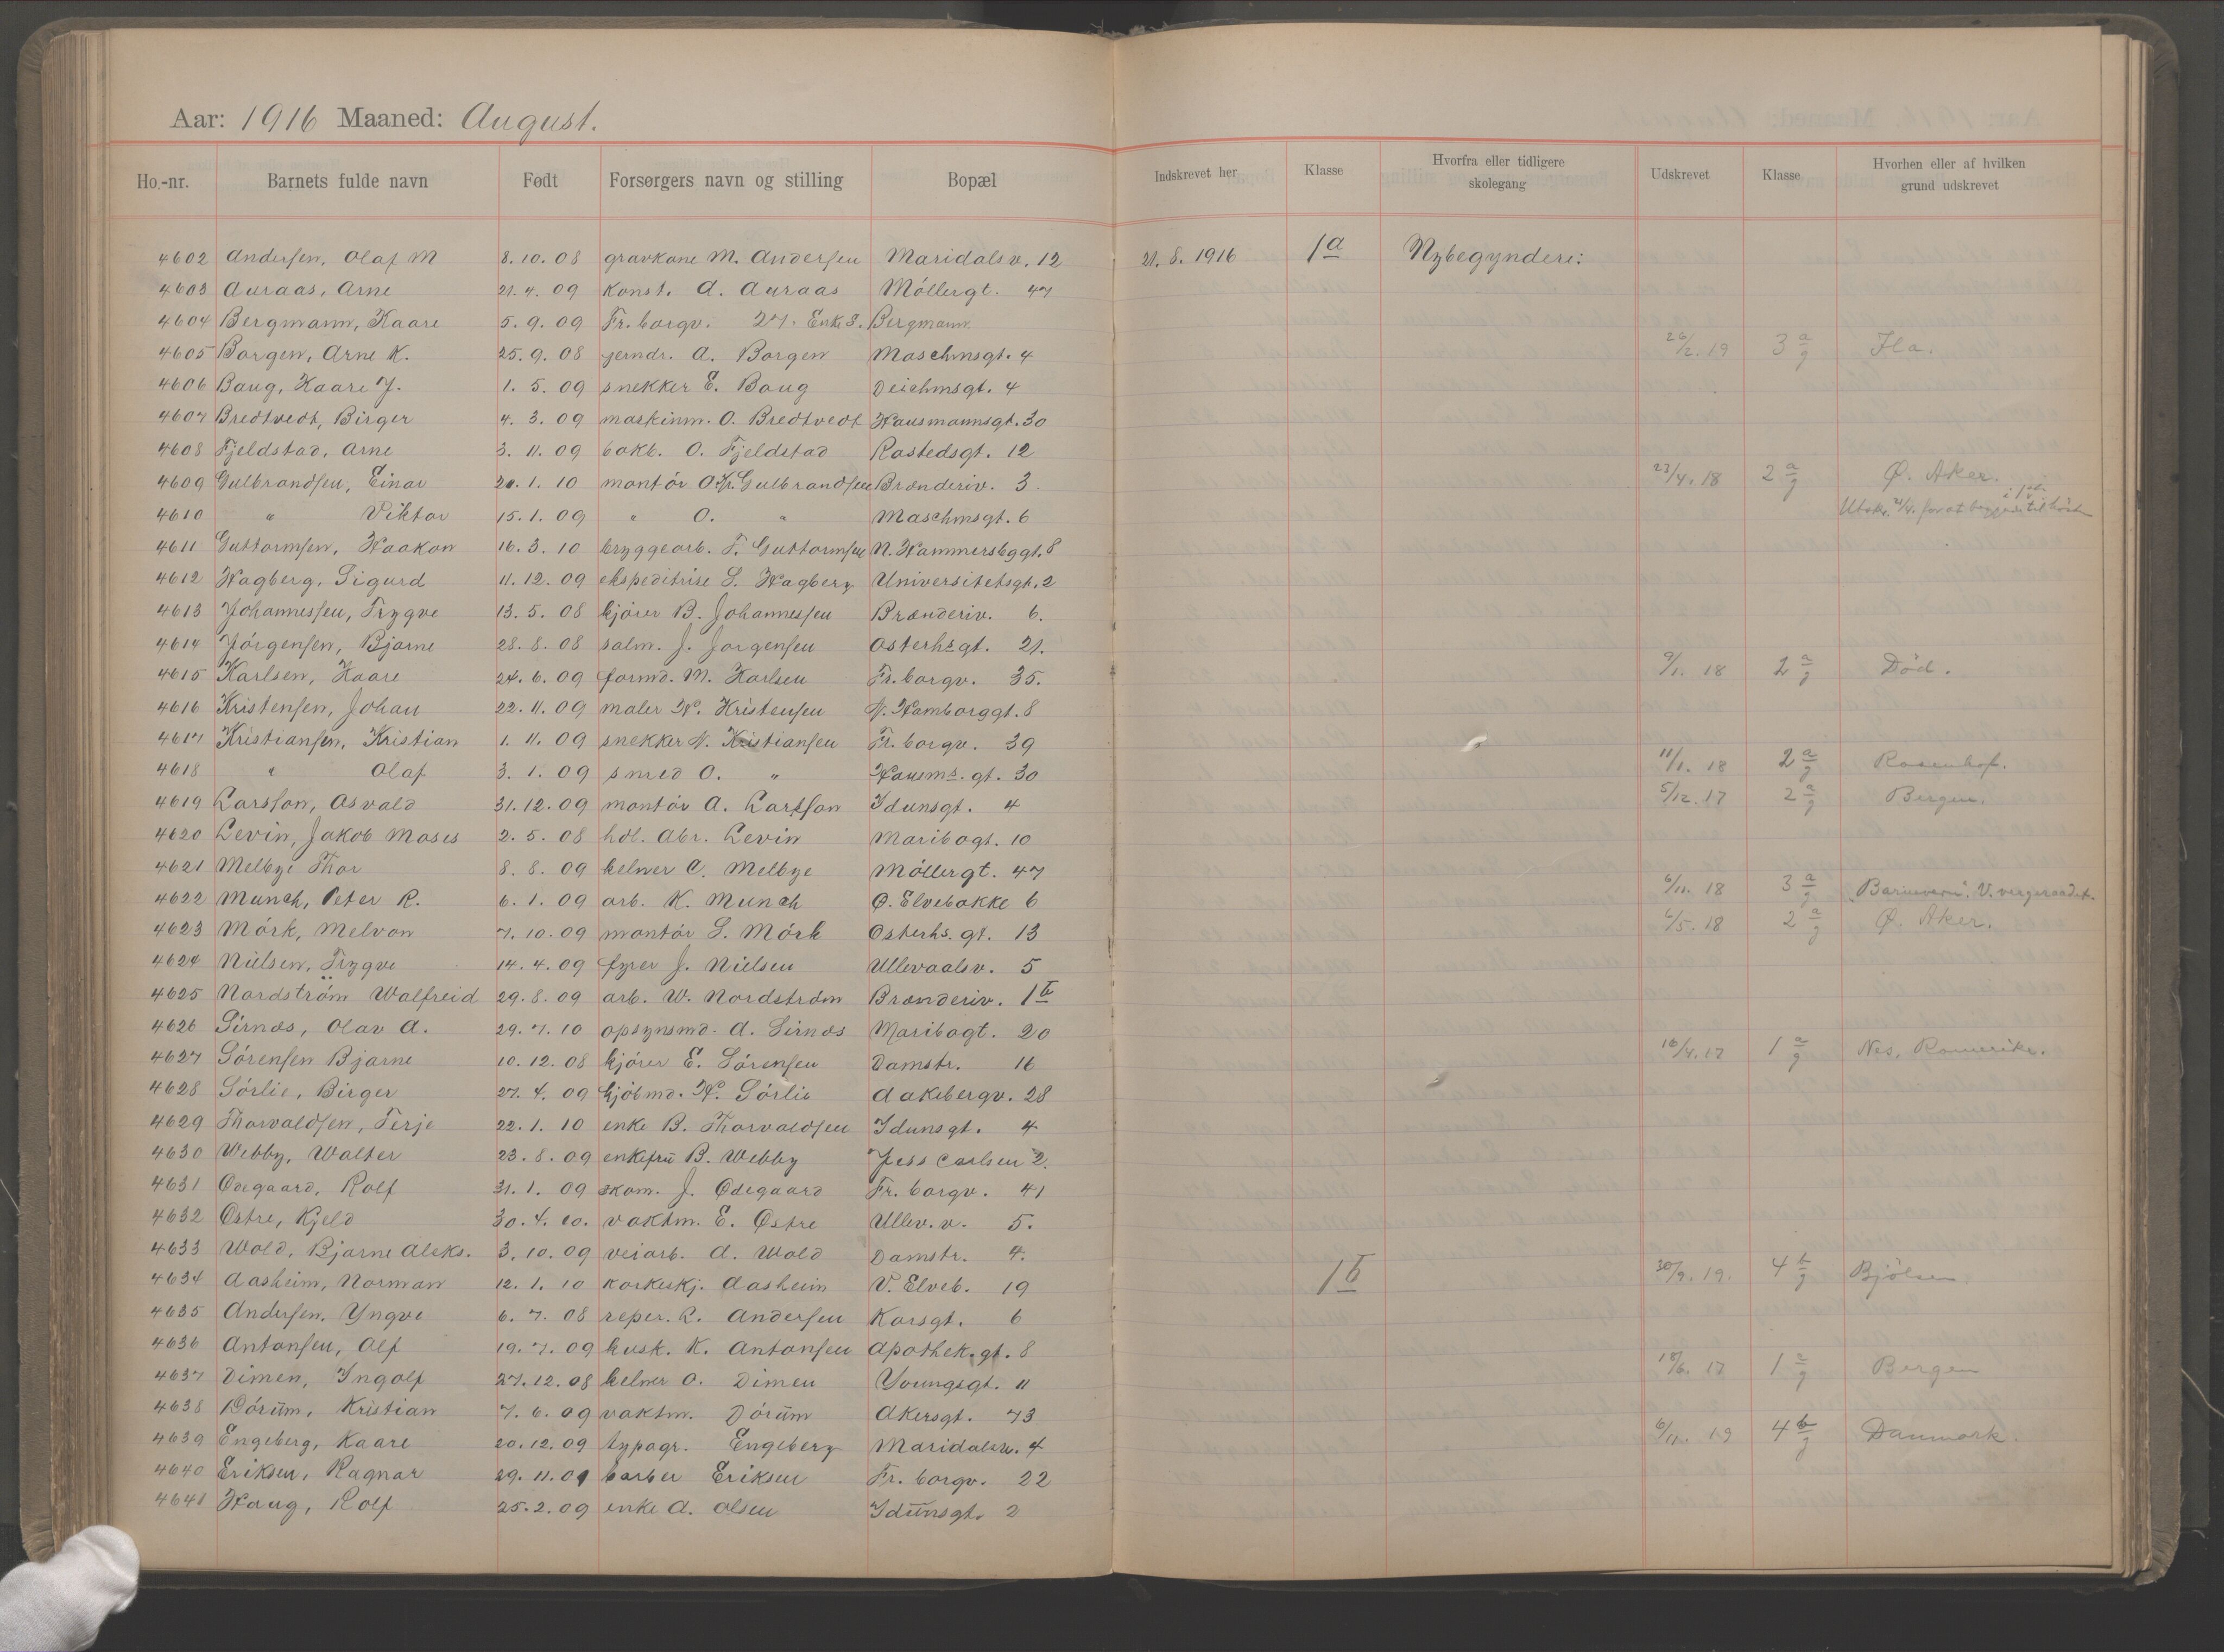 Aar: 1916 Maaned: August.
Ho.-nr. Barnets fulde navn Født Forsørgers navn og stilling Bopæl Indskrevet her Klasse Hvorfra eller tidligere skolegang Udskrevet Klasse Hvorhen eller af hvilken grund udskrevet
4602 Andersen, Olaf M 8.10.08 gravkone M. Andersen Maridalsv. 12 21.8.1916 1a Nybegyndere:
4603 Auraas, Arne 21.4.09 Konst. A. Auraas Möllergt. 47
4604 Bergmann, Kaare 5.9.09 Fr.borgv. 27. Enke S. Bergmann
4605 Borgen, Arne K. 25.9.08 jerndr. A. Borgen Maschmsgt. 4 26/2.19 3 a/g Ila.
4606 Baug, Kaare J. 1.5.09 snekker E. Baug Deichmsgt. 4
4607 Bredtvedt, Birger 4.3.09 maskinm. O. Bredtvedt Hausmannsgt. 30
4608 Fjeldstad, Arne 3.11.09 bokb. O. Fjeldstad Rostedsgt. 12
4609 Gulbrandsen, Einar 20.1.10 montör O.Kr. Gulbrandsen Brænderiv. 3. 23/4.18 2 a/g Ø. Aker.
4610 " Viktor 15.1.09 " O. " Maschmsgt. 6 Utskr. 21/4. for at begynne i 1ste til høsten
4611 Guttormsen, Haakon 16.3.10 bryggearb. F. Guttormsen N. Hammersbggt. 8
4612 Hagberg, Sigurd 11.12.09 ekspeditrise S. Hagberg Universitetsgt. 2
4613 Johannessen, Trygve 13.5.08 kjörer B. Johannessen Brænderiv. 6.
4614 Jörgensen, Bjarne 28.8.08 salm. J. Jorgensen Osterhsgt. 21.
4615 Karlsen, Kaare 24.6.09 formd. M. Karlsen Fr.borgv. 35. 9/1.18 2 a/g Död.
4616 Kristensen, Johan 22.11.09 maler H. Kristensen N. Hamborggt. 8
4617 Kristiansen, Kristian 1.11.09 snekker N. Kristiansen Fr.borgv. 39
4618 " Olaf 3.1.09 smed O. " Hausms.gt. 30 11/1.18 2 a/g Rosenhof.
4619 Larsson, Osvald 31.12.09 montör A. Larsson Idunsgt. 4 5/12.17 2 a/g Bergen.
4620 Levin, Jakob Moses 2.5.08 hdl. Abr. Levin Maribogt. 10
4621 Melbye Thor 8.8.09 kelner C. Melbye Möllergt. 47
4622 Munch, Peter R. 6.1.09 arb. K. Munch Ø. Elvebakke 6 6/11.18 3 a/g "Barnevern". V. vergeraadet.
4623 Mörk, Melvon 7.10.09 montör S. Mörk Osterhs.gt. 13 6/5.18 2 a/g Ø. Aker.
4624 Nielsen, Trygve 14.4.09 fyrer J. Nielsen Ullevaalsv. 5
4625 Nordström Walfreid 29.8.09 arb. W. Nordström Brænderiv. 1b
4626 Sirnæs, Olav A. 29.7.10 opsynsmd. A. Sirnæs Maribogt. 20
4627 Sörensen Bjarne 10.12.08 kjörer E. Sörensen Damstr. 16 16/4.17 1 a/g Nes, Romerike.
4628 Sörlie, Birger 27.4.09 kjöbmd. H. Sörlie Aakebergv. 28
4629 Thorvaldsen, Terje 22.1.10 enke B. Thorvaldsen Idunsgt. 4
4630 Webby, Walter 23.8.09 enkefru B. Webby Jess Carlsen 2.
4631 Odegaard, Rolf 31.1.09 skom. J. Ödegaard Fr.borgv. 41
4632 Östre, Kjeld 30.4.10. vaktm. E. Østre Ullev.v. 5.
4633 Wold, Bjarne Aleks. 3.10.09 veiarb. A. Wold Damstr. 4.
4634 Aasheim, Norman 12.1.10 korkeskj. Aasheim V. Elveb. 19 1b 30/9.19. 4 b/g Bjölsen
4635 Andersen, Yngve 6.7.08 reper. R. Andersen Korsgt. 6
4636 Antonsen, Alf 19.7.09 kusk. K. Antonsen Apothek.gt. 8
4637 Dimen, Ingolf 27.12.08 kelner O. Dimen Youngsgt. 11 18/6.17 1 a/g Bergen
4638 Dörum, Kristian 7.6.09 vaktm. Dörum Akersgt. 73
4639 Engeberg, Kaare 20.12.09 typogr. Engeberg Maridalsv. 4 6/11.19 4 b/g Danmark.
4640 Eriksen, Ragnar 29.11.09 barber Eriksen Fr.borgv. 22
4641 Haug, Rolf 25.2.09 enke A. Olsen Idunsgt. 2